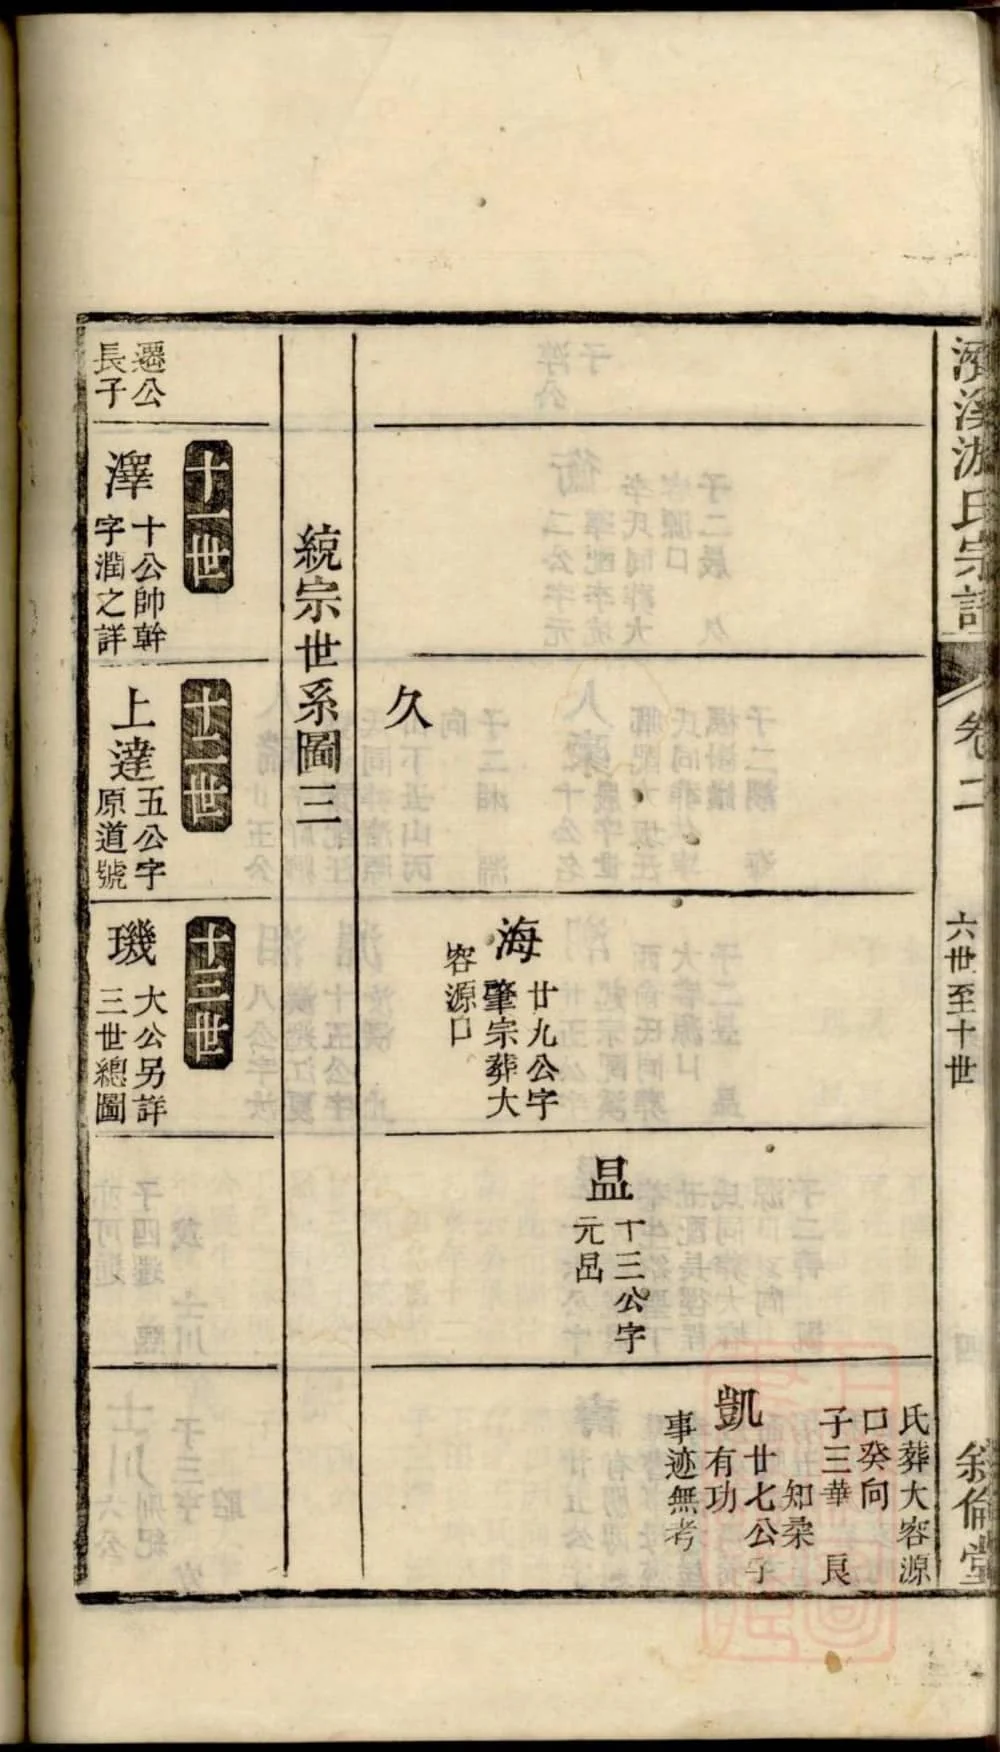 濟溪游氏宗譜
卷二
六世至十世
叙倫堂
氏葬大容源
口癸向
子三華 良
知柔
凱
廿七公字
有功
事迹無考
昷
十三公字
元昌
海
廿九公字
肇宗葬大
容源口
久
統宗世系圖三
十一世
十二世
十三世
遷公
長子
澤
十公帥幹
字潤之詳
上達
五公字
原道號
璣
大公另詳
三世總圖